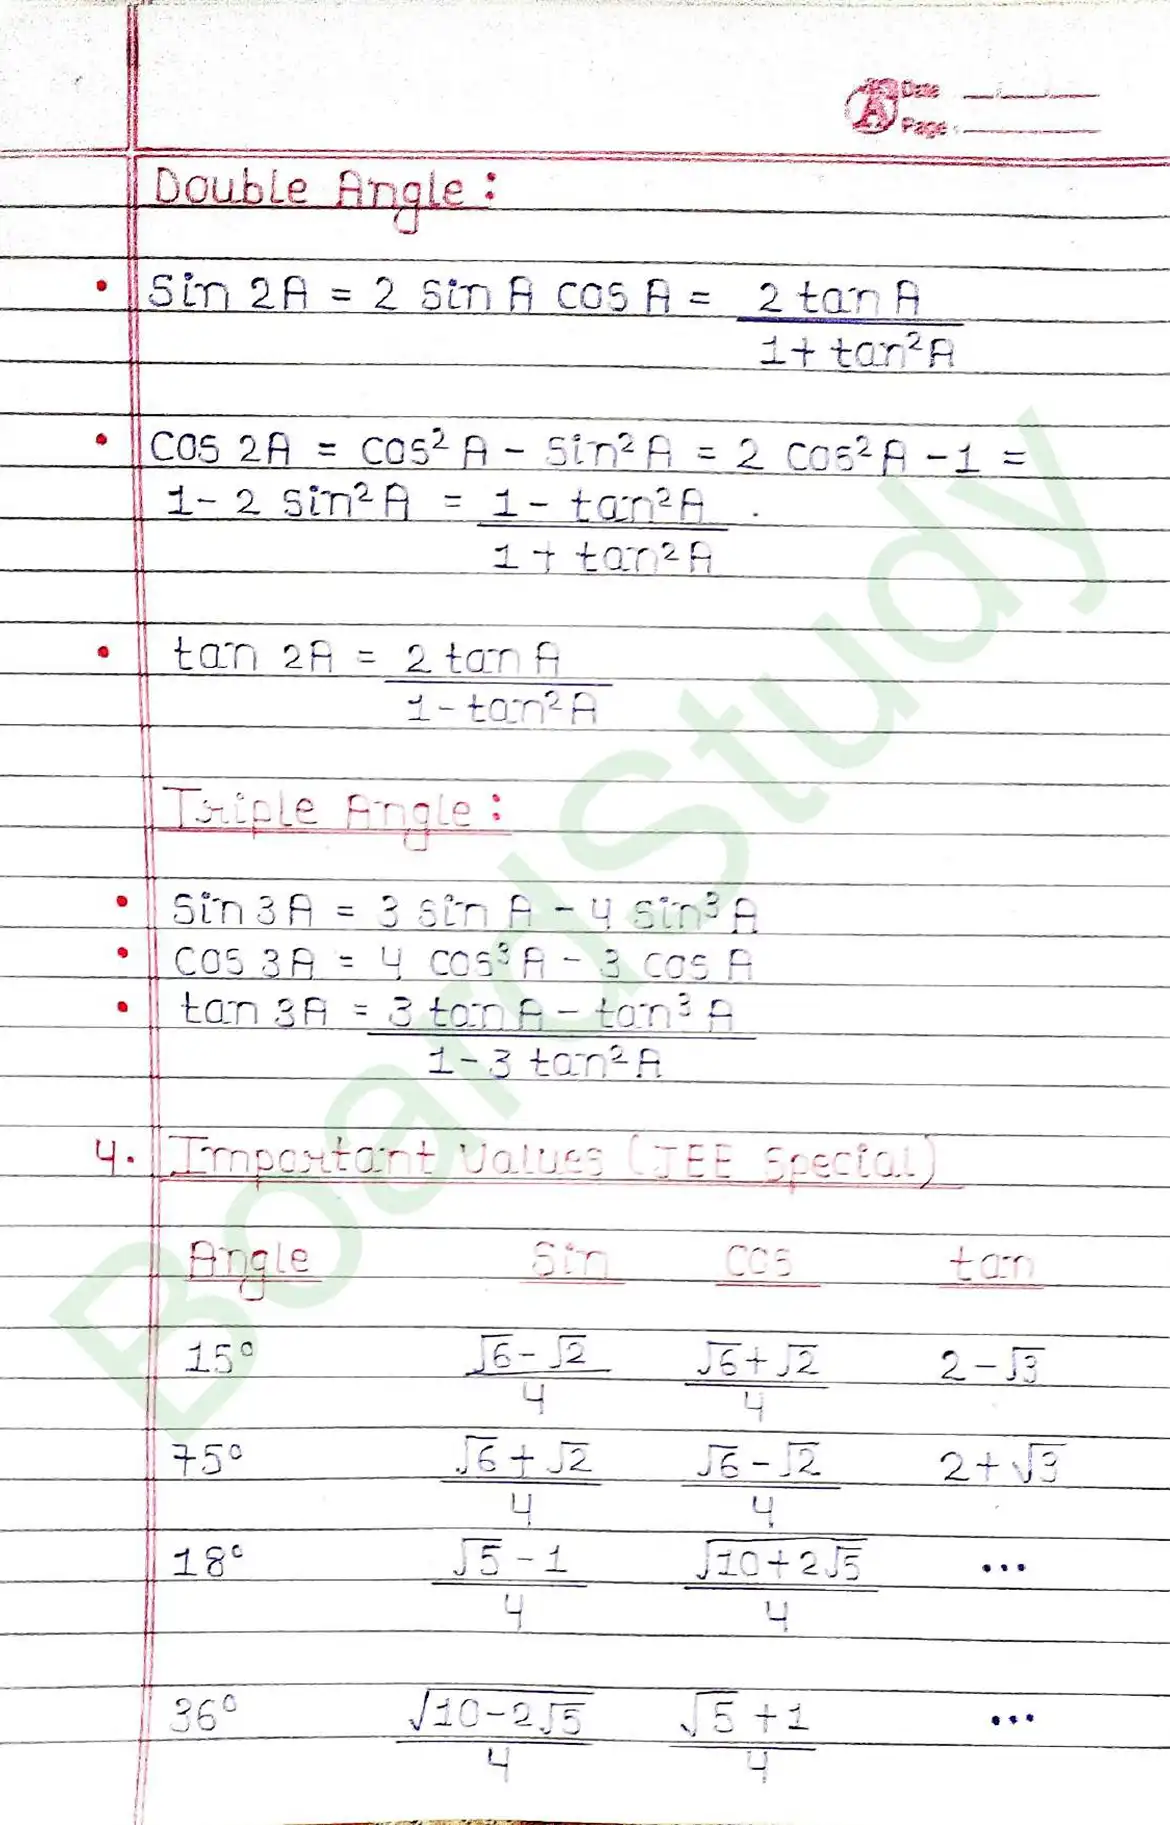 Date
Page:
Double Angle:
• sin 2A = 2 sin A cos A = 2 tan A / 1 + tan²A
• cos 2A = cos²A - sin²A = 2 cos²A - 1 =
1 - 2 sin²A = 1 - tan²A / 1 + tan²A .
• tan 2A = 2 tan A / 1 - tan²A
Triple Angle:
• sin 3A = 3 sin A - 4 sin³A
• cos 3A = 4 cos³A - 3 cos A
• tan 3A = 3 tan A - tan³A / 1 - 3 tan²A
4. Important Values (JEE Special)
Angle sin cos tan
15° √6 - √2 / 4 √6 + √2 / 4 2 - √3
75° √6 + √2 / 4 √6 - √2 / 4 2 + √3
18° √5 - 1 / 4 √(10 + 2√5) / 4 ...
36° √(10 - 2√5) / 4 √5 + 1 / 4 ...
BoardStudy